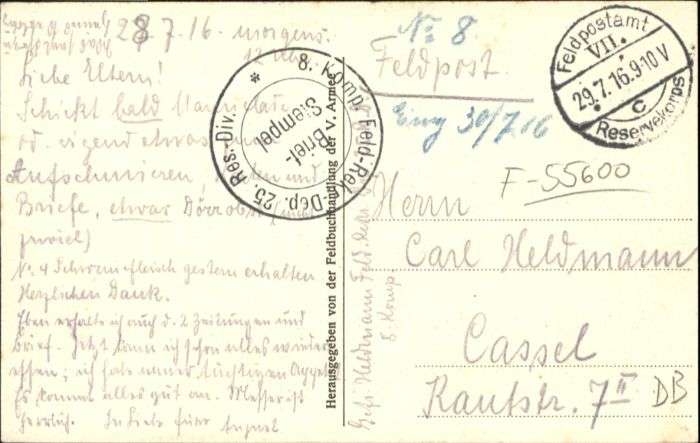 28.7.16. morgens.
12 Uhr.
Liebe Eltern!
Schickt bald Marmelade
od. irgend etwas zum
Aufschmieren, und
Briefe, etwas Dörrobst (nicht
zuviel)
No. 4 Schweinefleisch gestern erhalten
Herzlichen Dank.
Eben erhalte ich auch d. 2 Zeitungen und
Brief. Jetzt kann ich schon alles wieder
essen; ich habe einen tüchtigen Appetit
Es kommt alles gut an. Messer ist
herrlich. In Liebe Euer August
8. Komp. Feld-Rekr. Dep. 25. Res.-Div. *
Brief-
Stempel
Herausgegeben von der Feldbuchhandlung der V. Armee
Gefr. Heldmann Feld Rekr.
8. Komp
No 8
Feldpost.
Eing 30/7 16
Feldpostamt
VII.
29.7.16.9-10 V
* C
Reservekorps
F-55600
Herrn
Carl Heldmann
Cassel
Kantstr. 7 II
DB